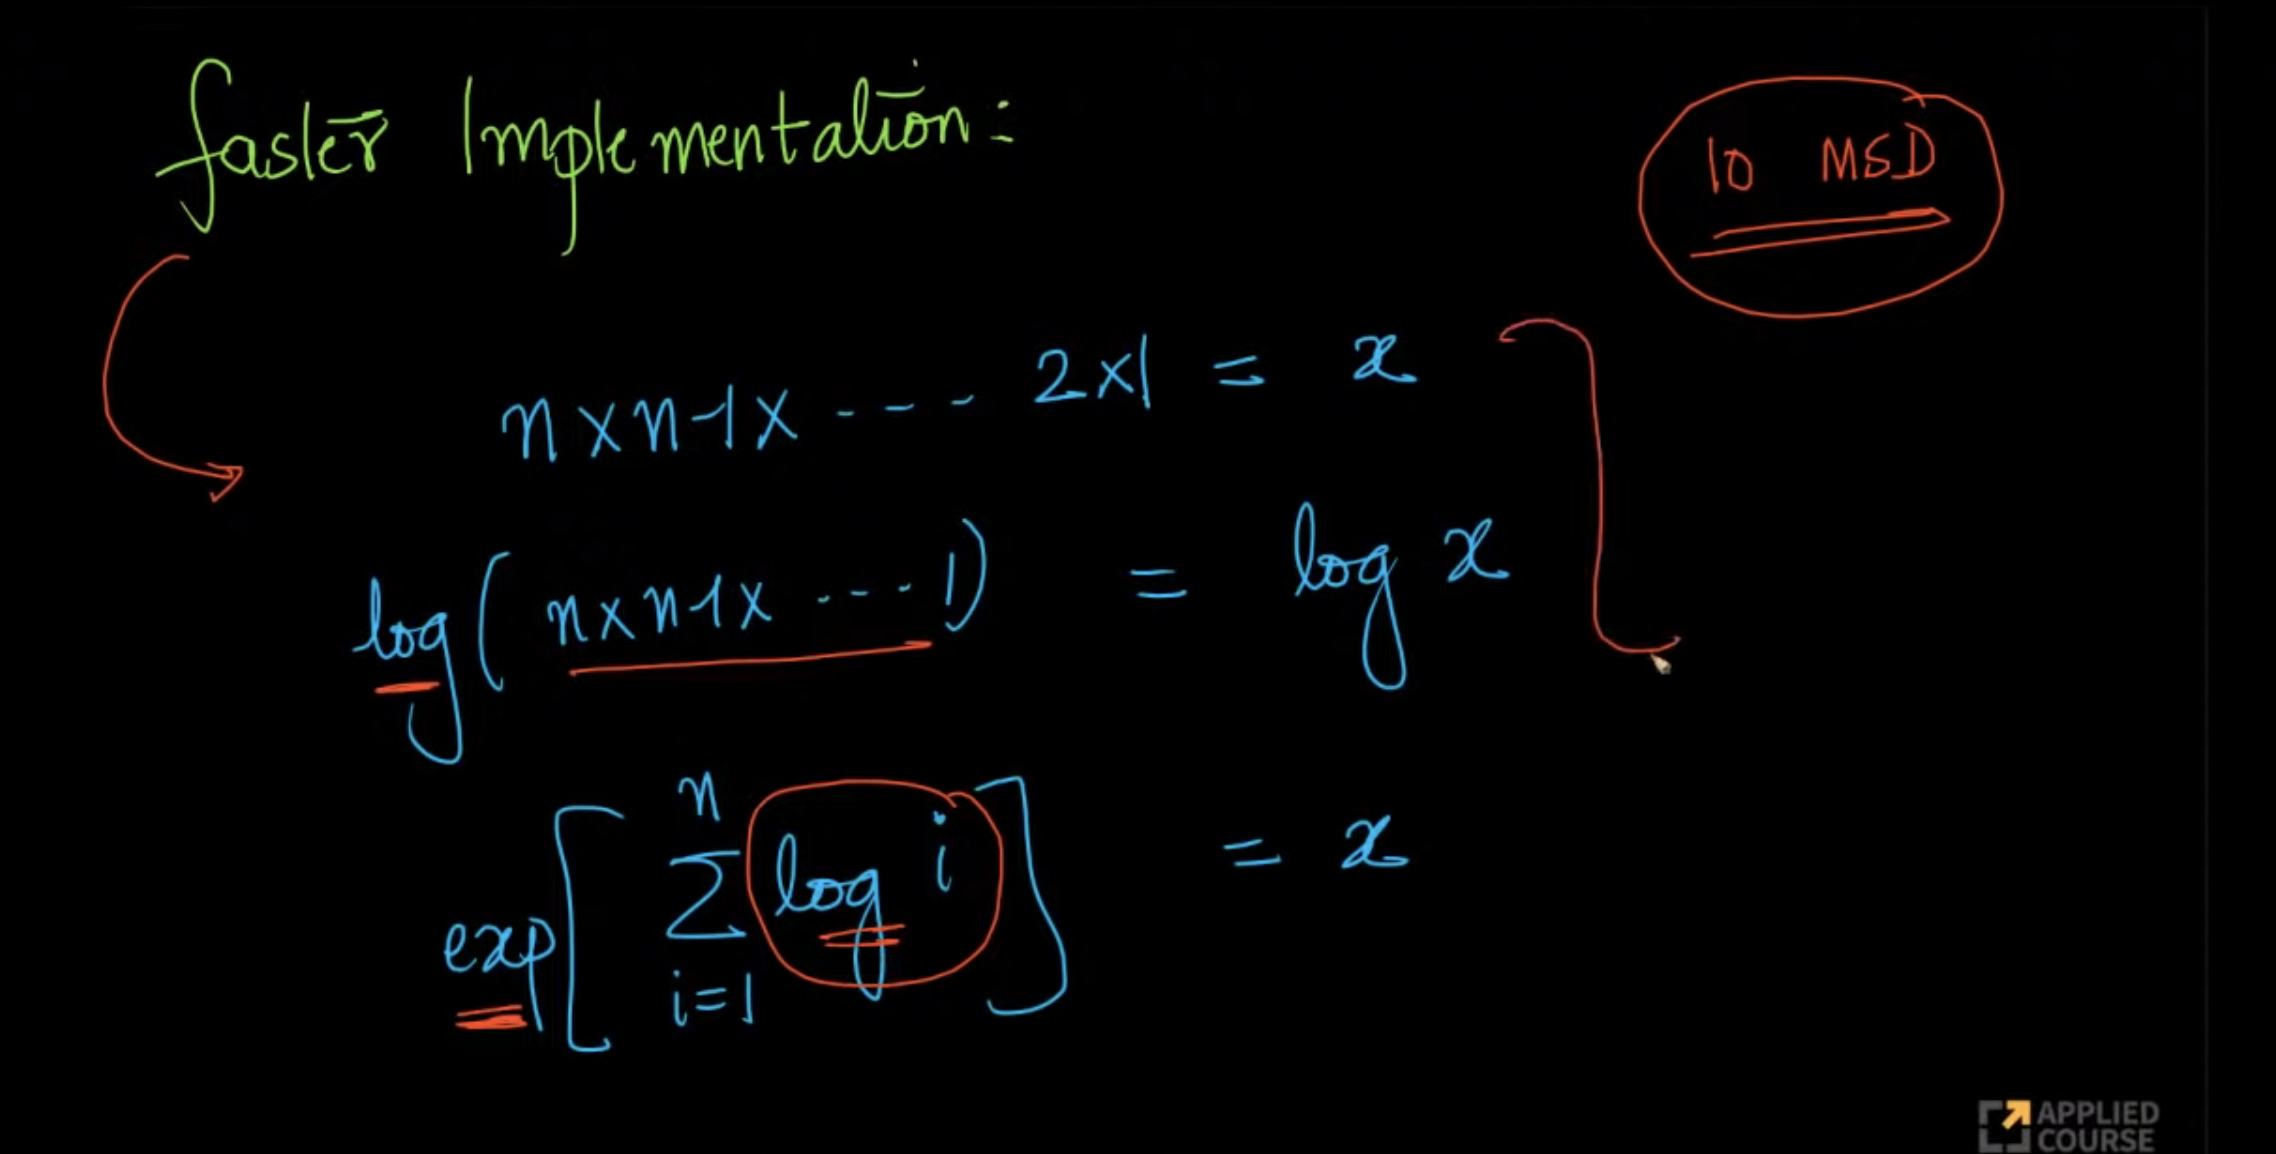 faster Implementation:
10 MSD
n x n-1 x ---- 2x1 = x
log ( n x n-1 x ---- 1) = log x
exp [ n ∑ i=1 log i ] = x
APPLIED
COURSE